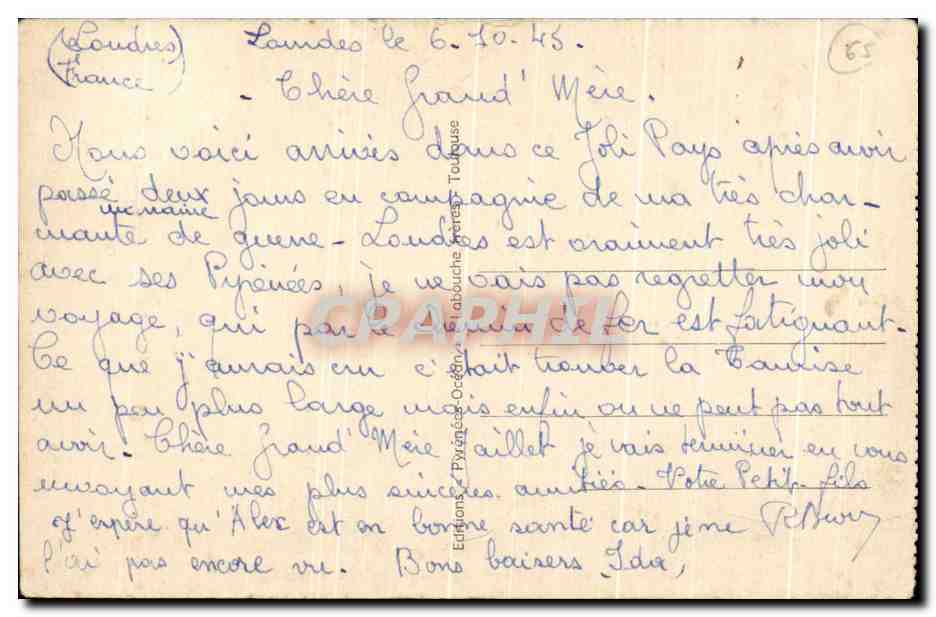 (Londres)
(France)
Lourdes le 6-10-45.
65
- Chère Grand' Mère.
Nous voici arrivés dans ce Joli Pays après avoir
passé deux jours en compagnie de ma très char-
mante marraine de guerre - Londres est vraiment très joli
avec ses Pyrénées, je ne vais pas regretter mon
voyage, qui par le chemin de fer est fatiguant.
Ce que j'aurais cru c'était trouver la Tamise
un peu plus large mais enfin on ne peut pas tout
avoir. Chère Grand' Mère je vais terminer en vous
envoyant mes plus sincères amitiés. Votre Petit-fils
J'espère qu'Alex est en bonne santé car je ne
l'ai pas encore vu. Bons baisers Ida,
Editions Pyrénées-Océan, Labouche frères - Toulouse
CRAPHIL